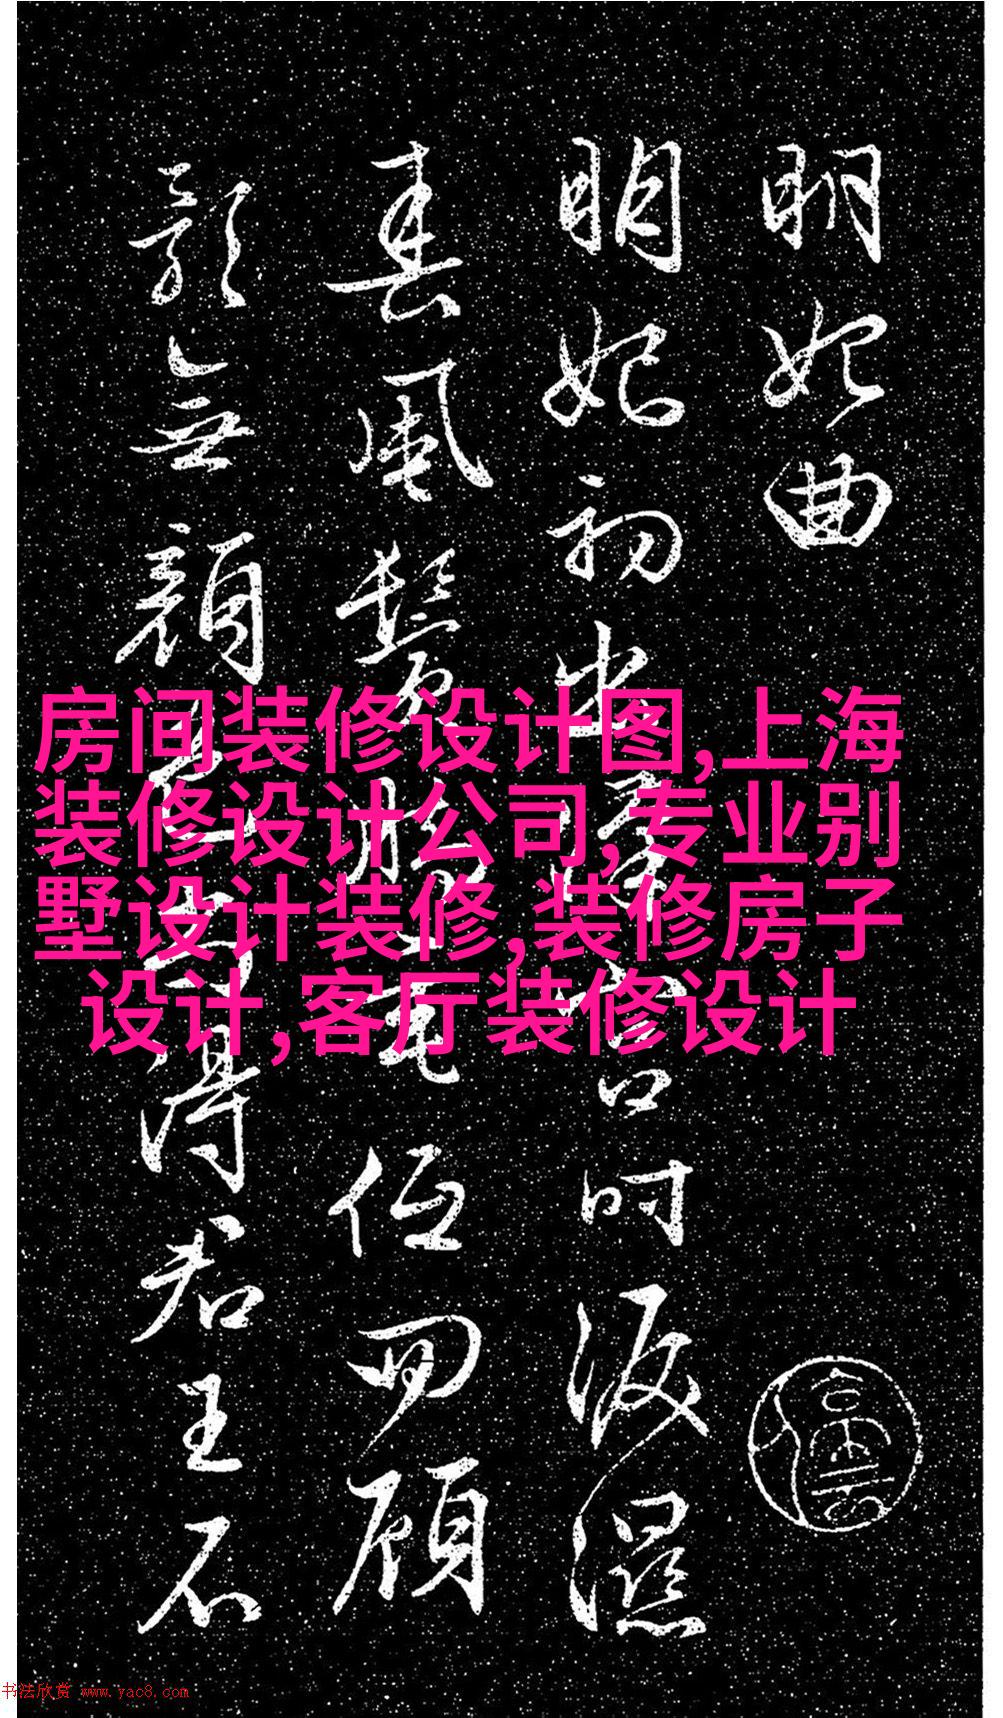 明妃曲
明妃初出漢宮時淚濕
春風鬢腳垂低回顧
影無顏色尚得君王不
房间装修设计图,上海
装修设计公司,专业别
墅设计装修,装修房子
设计,客厅装修设计
书法欣赏 www.yac8.com